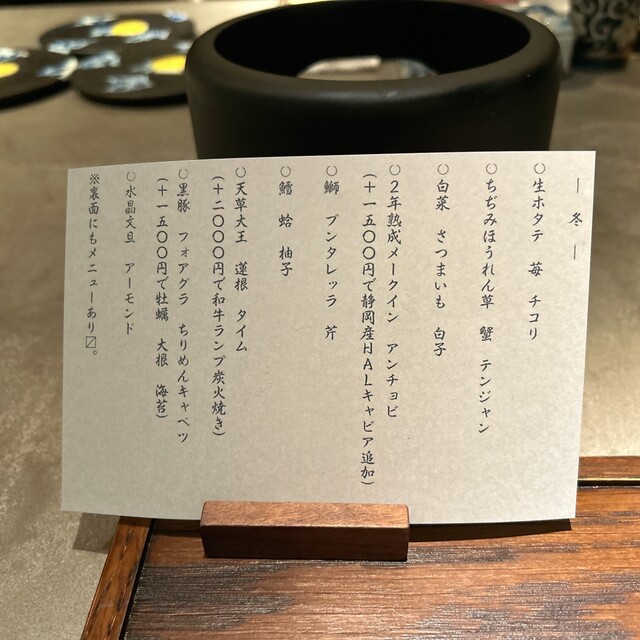 ― 冬 ―
○生ホタテ 苺 チコリ
○ちぢみほうれん草 蟹 テンジャン
○白菜 さつまいも 白子
○2年熟成メークイン アンチョビ
(+一五〇〇円で静岡産HALキャビア追加)
○鰤 プンタレッラ 芹
○鱈 蛤 柚子
○天草大王 蓮根 タイム
(+二〇〇〇円で和牛ランプ炭火焼き)
○黒豚 フォアグラ ちりめんキャベツ
(+一五〇〇円で牡蠣 大根 海苔)
○水晶文旦 アーモンド
※裏面にもメニューあり〼。